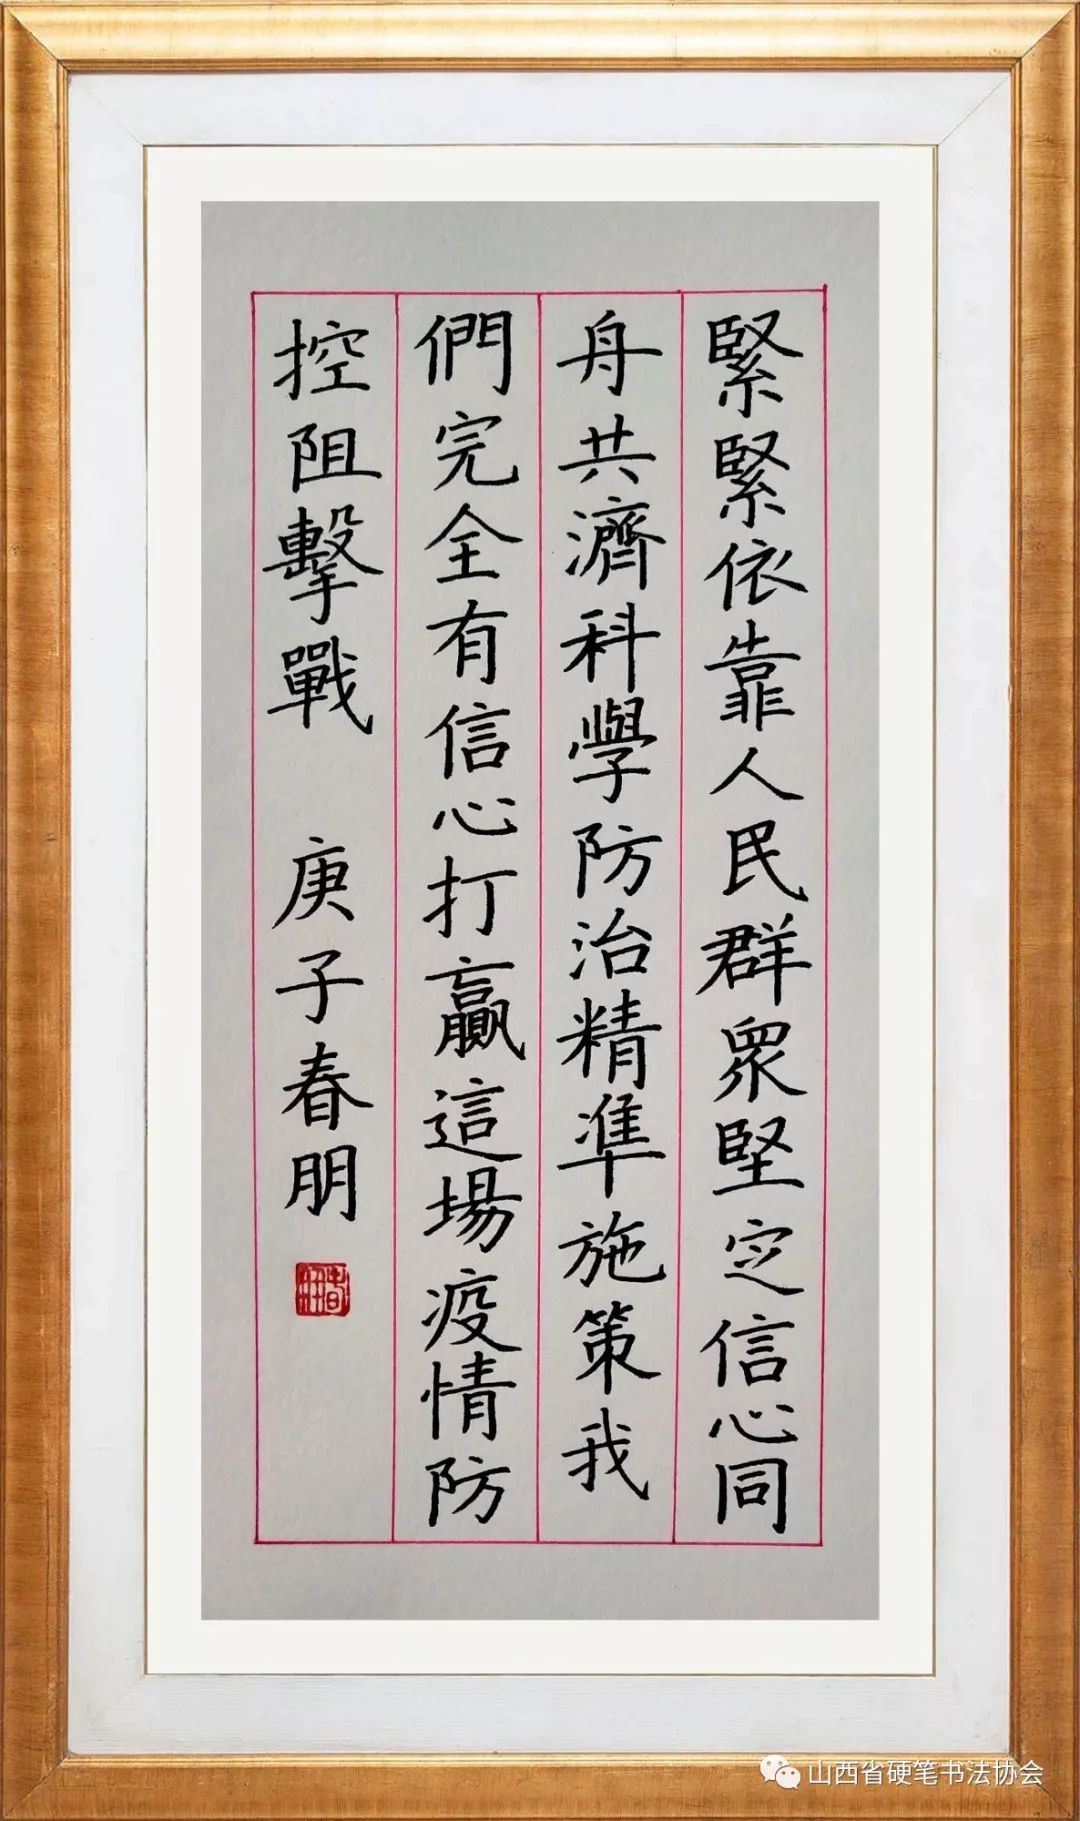 緊緊依靠人民群眾堅定信心同
舟共濟科學防治精準施策我
們完全有信心打贏這場疫情防
控阻擊戰 庚子春朋
山西省硬笔书法协会